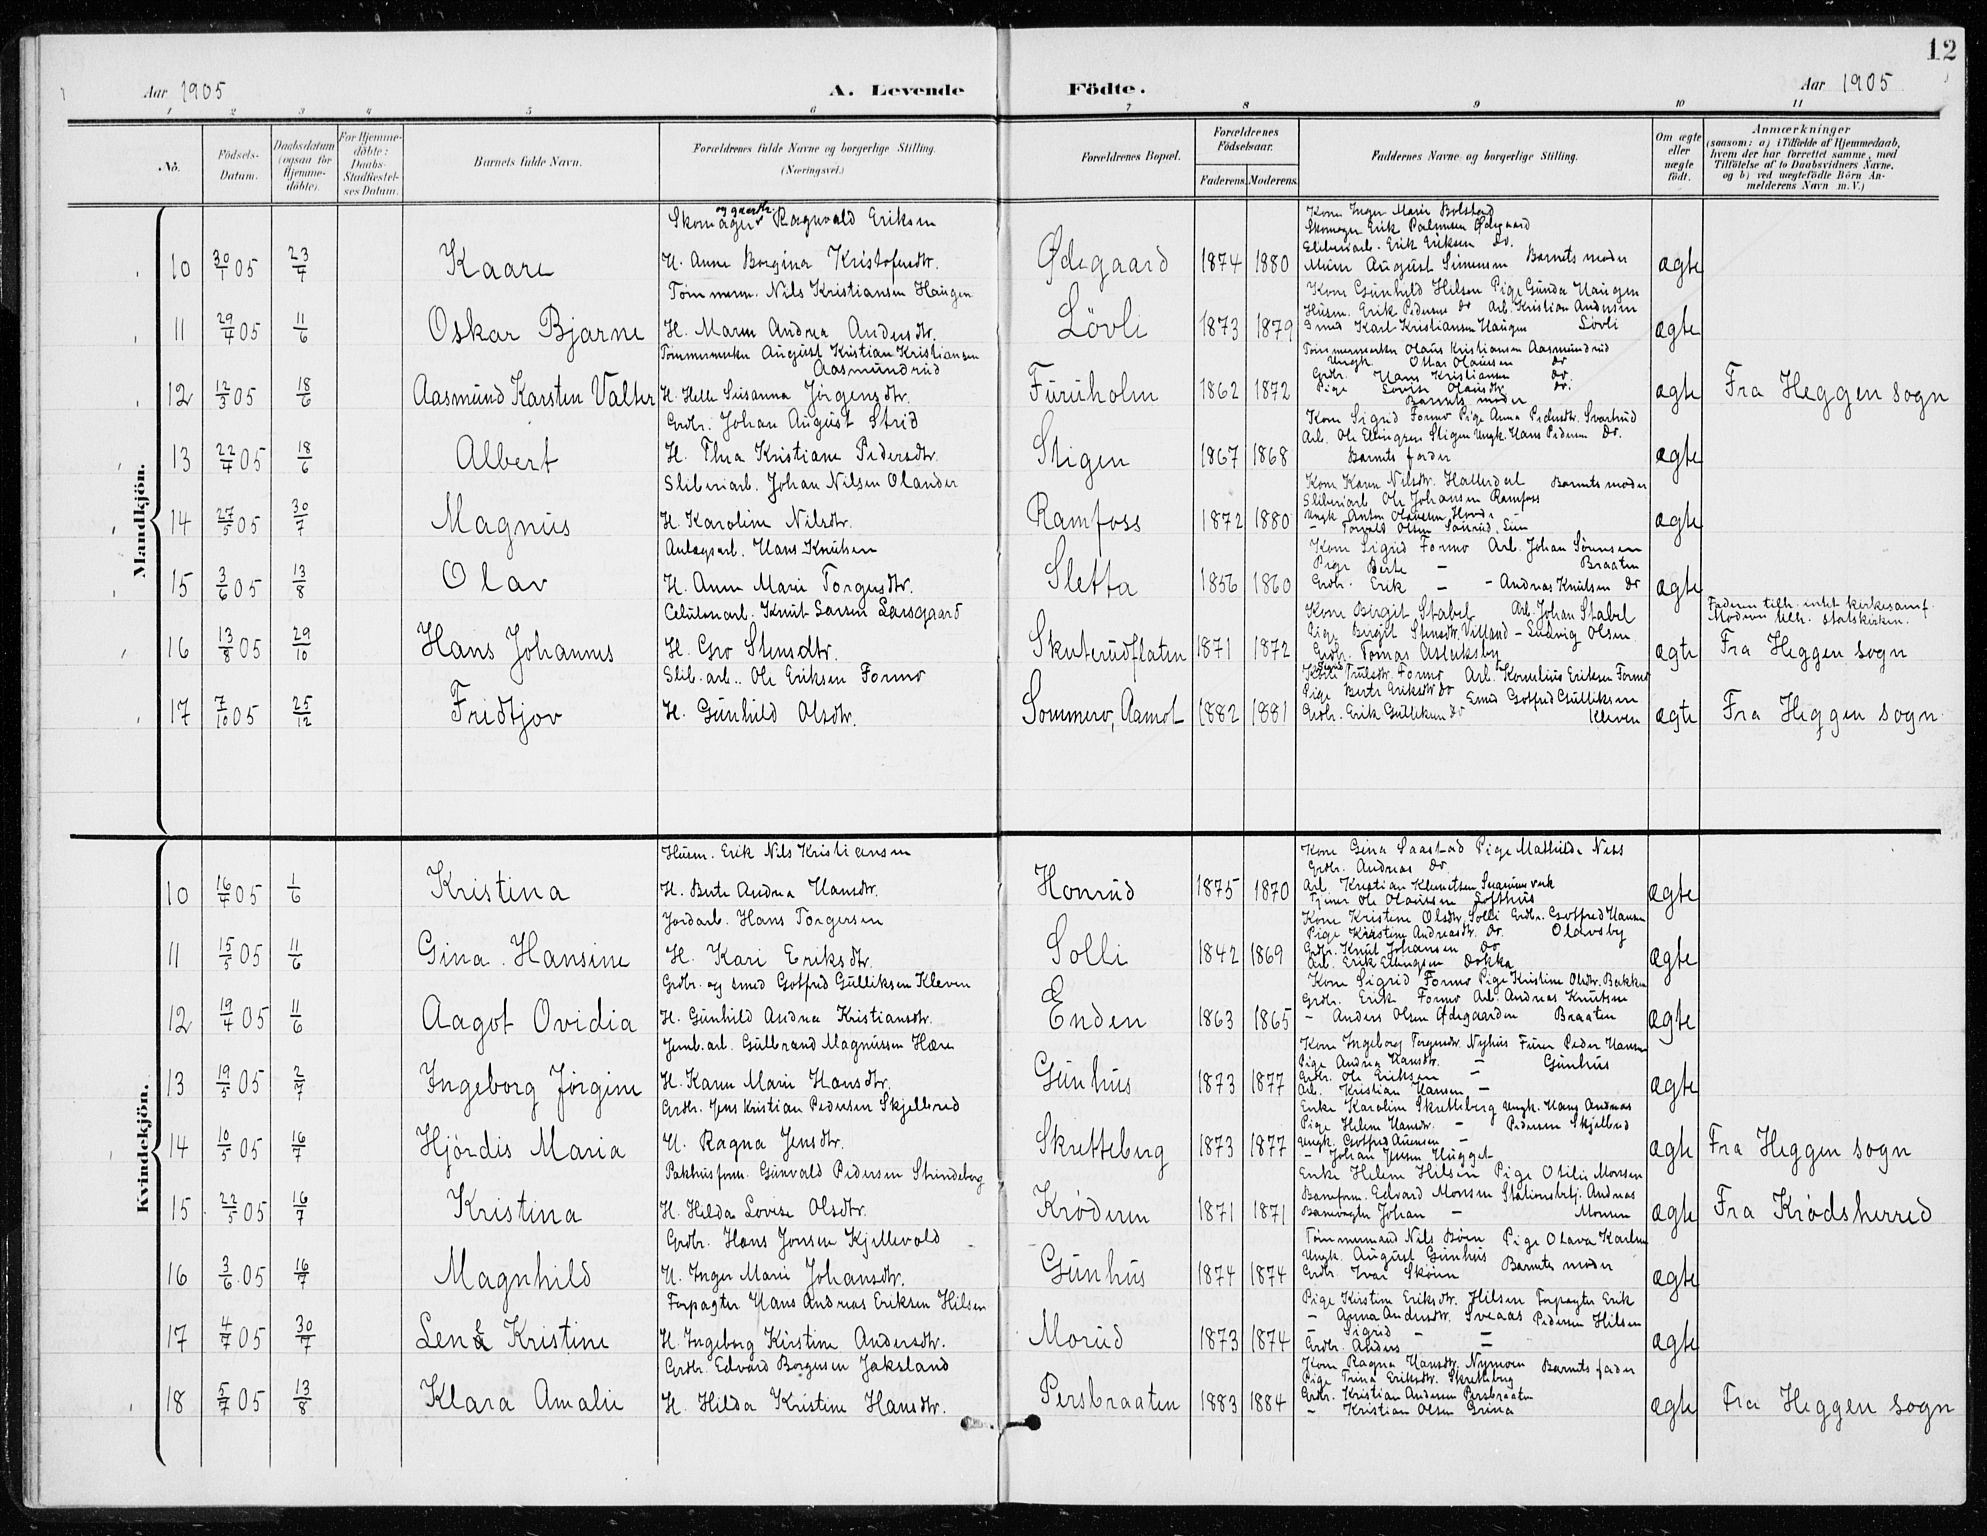 12
Aar 1905
A. Levende Födte.
Aar 1905
1 2 3 4 5 6 7 8 9 10 11
No.
Födsels-Datum.
Daabsdatum (ogsaa for Hjemme-döbte).
For Hjemme-döbte: Daabs-Stadfæstel-ses Datum.
Barnets fulde Navn.
Forældrenes fulde Navne og borgerlige Stilling. (Næringsvei.)
Forældrenes Bopæl.
Forældrenes Födselsaar.
Faderens. Moderens.
Faddernes Navne og borgerlige Stilling.
Om ægte eller uægte födt.
Anmærkninger
(saasom: a) i Tilfælde af Hjemmedaab, hvem der har forrettet samme, med Tilföielse af to Daabsvidners Navne. og b) ved uægtefödte Börn An-melderens Navn m. V.)
Mandkjön.
og gaardbr.
Skomager Ragnvald Eriksen
Kone Inger Marie Bolstad
Skomager Erik Palmesen Ødegaard
Sliberiarb. Erik Eriksen do.
10 30/1 05 23/4 Kaare H. Anne Borgina Kristofersdtr. Ødegaard 1874 1880 Murer August Simensen Barnets moder ægte
Tömmerm. Nils Kristiansen Haugen
Kone Gunhild Hilsen Pige Gunda Haugen
Husm. Erik Pedersen do Arb. Kristian Andersen
11 29/4 05 11/6 Oskar Bjarne H. Maren Andrea Andersdtr. Lövli 1873 1879 Smed Karl Kristiansen Haugen Lövli ægte
Tömmermerker August Kristian Kristiansen Aasmundrud
Tømmermerker Olaus Kristiansen Aasmundrud
Ungk. Ottar Olausen do
Grdbr. Hans Kristiansen do.
12 12/3 05 18/6 Aasmund Karsten Valter H. Helle Susanna Jörgensdtr. Furuholm 1862 1872 Pige Lovise Olausdtr. do. ægte Fra Heggen sogn
Barnets moder
Grdbr. Johan August Strid
Kone Sigrid Formo Pige Anna Pedersdtr. Svartrud
Arb. Ole Ellingsen Stigen Ungk. Hans Pedersen do.
13 22/4 05 18/6 Albert H. Thea Kristiane Pedersdtr. Stigen 1867 1868 Barnets fader ægte
Sliberiarb. Johan Nilsen Olander
Kone Karen Nilsdtr. Hallerdal Barnets moder
Sliberiarb Ole Johansen Ramfoss
14 27/5 05 30/7 Magnus H. Karoline Nilsdtr. Ramfoss 1872 1880 Ungk Anton Olavesen Hovde ægte
Anlægsarb. Hans Knutsen
Kone Sigrid Formo Arb. Johan Sörensen
Pige Berte – Braaten
15 3/6 05 13/8 Olav H. Anne Marie Torgersdtr. Sletta 1856 1860 Grdbr. Erik – – Andreas Knutsen do ægte
Celulosearb. Knut Larsen Larsgaard
Kone Birgit Stabel Arb. Johan Stabel
Faderen tilh. intet kirkesamf.
Moderen tilh. statskirken.
Pige Birgit Stensdtr. Villand – Ludvig Olsen
16 13/8 05 29/10 Hans Johannes H. Gro Stensdtr. Skuterudflaten 1871 1872 Grdbr. Tomas Aslaksby ægte Fra Heggen sogn
Slib.arb.. Ole Eriksen Formo
Trulsdtr. Formo Arb. Kornelius Eriksen Formo
Pige Berte Eriksdtr do Smed Gotfred Gulliksen
17 7/10 05 25/12 Fridtjov H. Gunhild Olsdtr. Sommero, Aamot 1882 1881 Grdbr. Erik Gulliksen do Kleven ægte Fra Heggen sogn
Kvindekjön.
Husm. Erik Nils Kristiansen
Kone Gina Saastad Pige Mathilde Næss
Grdbr. Andreas do.
10 16/4 05 1/6 Kristina H. Berte Andrea Hansdtr. Honrud 1875 1870 Arb. Kristian Klemetsen Snarumsverk ægte
Tjener Ole Olausen Lofthus
Jordarb. Hans Torgersen
Kone Kristine Olsdtr. Solli Grdbr. Gotfred Hansen
Pige Kristine Andreasdtr. do. Olavsby
11 15/5 05 11/6 Gina Hansine H. Kari Eriksdtr. Solli 1842 1869 Grdbr. Knut Johansen do ægte
Arb. Erik Ellingsen Dokka
Grdbr. og smed Gotfred Gulliksen Kleven
Kone Sigrid Formo Pige Kristine Olsdtr. Bakken
Grdbr. Erik Formo Arb. Andreas Knutsen
12 19/4 05 11/6 Aagot Ovidia H. Gunhild Andrea Kristiansdtr. Enden 1863 1865 – Anders Olsen Ødegaarden Braaten ægte
Jernb.arb. Gulbrand Magnussen Hære
Kone Ingeborg Torgersdtr. Nyhus Furer Peder Hansen
Pige Andrea Hansdtr. – Gunhus
Grdbr. Ole Eriksen –
13 19/5 05 2/7 Ingeborg Jörgine H. Karen Marie Hansdtr. Gunhus 1873 1877 Arb. Kristian Hansen – ægte
Grdbr. Jens Kristian Pedersen Skjelbred
Enke Karoline Skretteberg Ungk. Hans Andreas
Pige Helene Hansdtr. – Pedersen Skjelbred
14 10/5 05 16/7 Hjördis Maria H. Ragna Jensdtr. Skretteberg 1873 1877 Ungk. Gotfred Auensen – ægte Fra Heggen sogn
– Johan Jensen Hugget
Pakhusform. Gunvald Pedersen Strindeberg
Enke Helene Hilsen Pige Otilie Monsen
Baneform. Edvard Monsen Stationsbetj. Andreas
15 22/5 05 16/7 Kristina H. Hilda Lovise Olsdtr. Krøderen 1871 1871 Banevogter Johan – Monsen ægte Fra Krødsherred
Grdbr. Hans Jonsen Kjellevold
Tømmermand Nils Bören Pige Olava Karlsen
Ungk. August Gunhus Barnets moder
16 3/6 05 16/7 Magnhild H. Inger Marie Johansdtr. Gunhus 1874 1874 Grdbr. Ivar Skören ægte
Forpagter Hans Andreas Eriksen Hilsen
Pige Kirstine Eriksdtr. Hilsen Forpagter Erik
– Anna Andersdtr. Sveaas Pedersen Hilsen
– Sigrid – –
17 4/7 05 30/7 Lene Kristine H. Ingeborg Kirstine Andersdtr. Morud 1873 1874 Grdbr. Anders – ægte
Grdbr. Edvard Borgersen Jaksland
Kone Ragna Hansdtr. Nymoen Barnets fader
Pige Trina Eriksdtr. Skretteberg
18 5/7 05 13/8 Klara Amalie H. Hilda Kristine Hansdtr. Persbraaten 1883 1884 Grdbr. Kristian Andersen Persbraaten ægte Fra Heggen sogn
– Kristian Olsen Brina